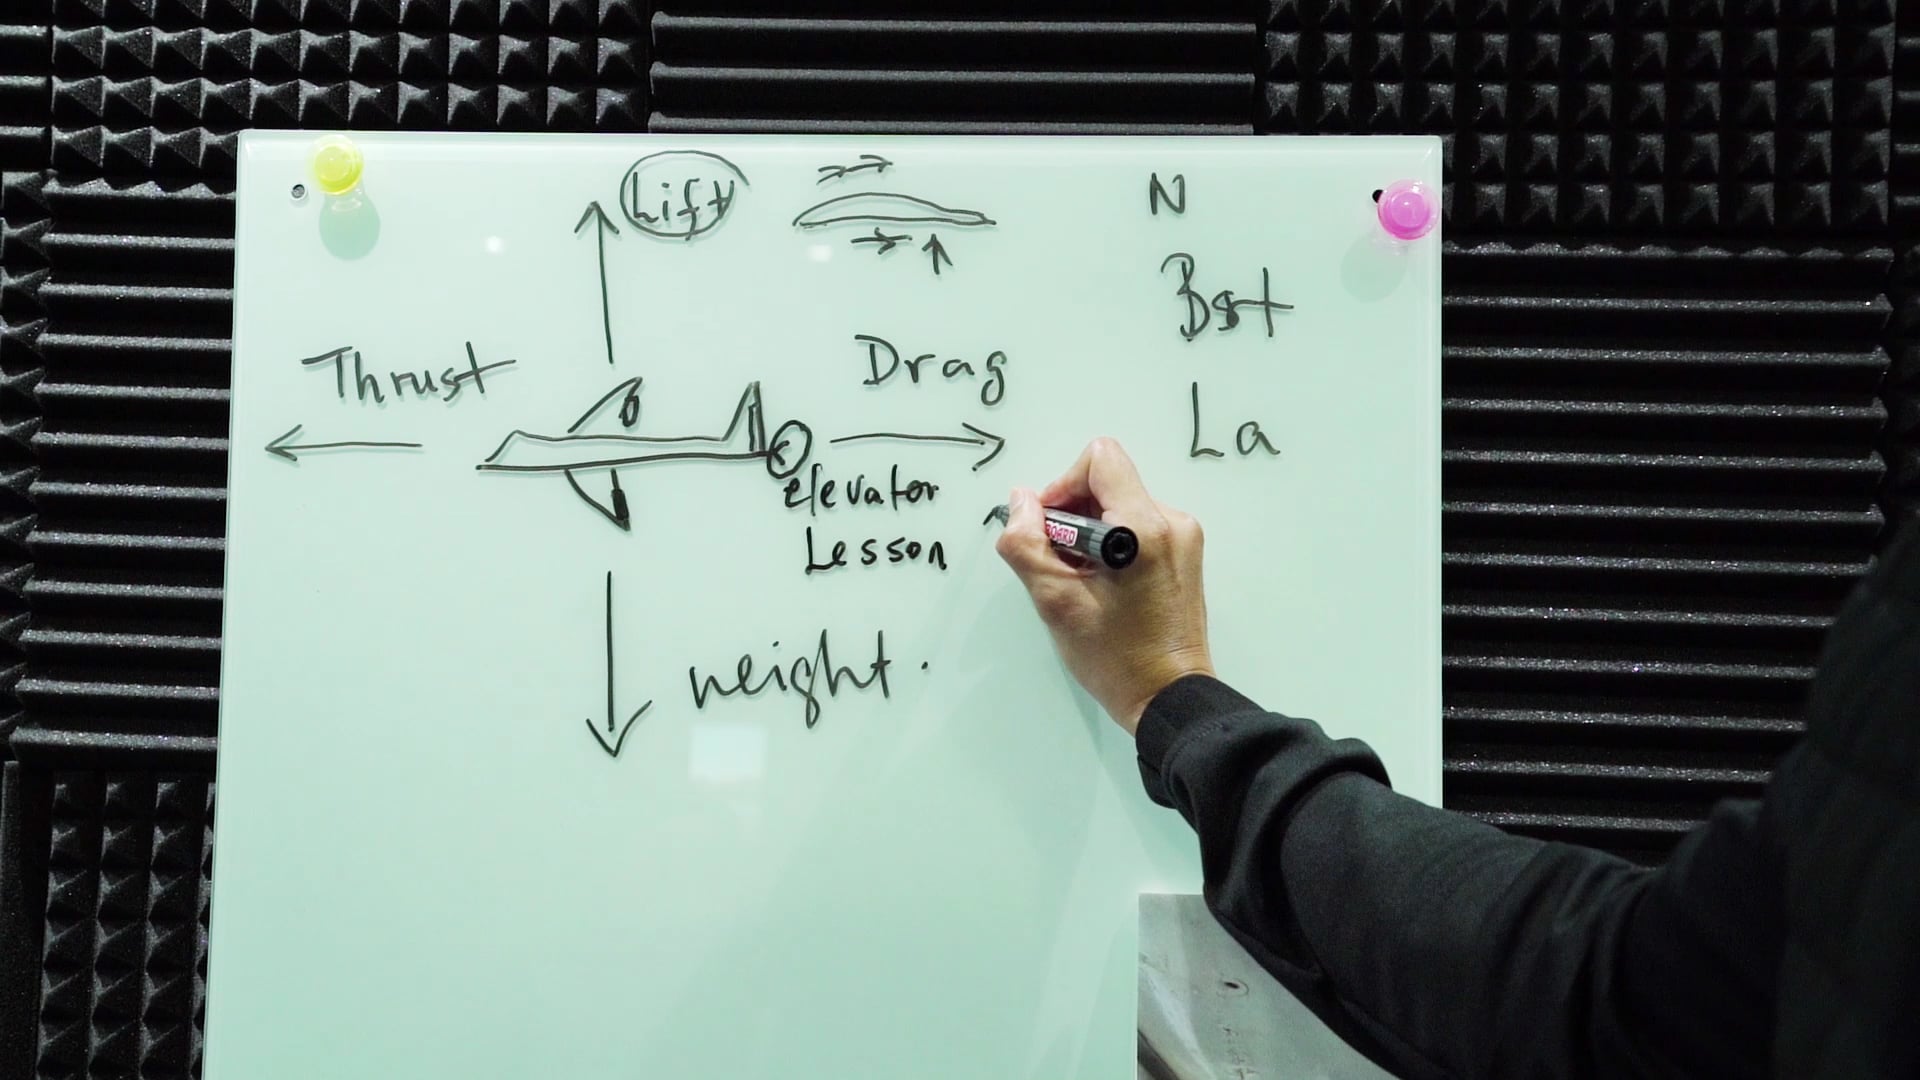 Lift
N
Bst
Thrust
Drag
La
elevator
Lesson
BOARD
weight.